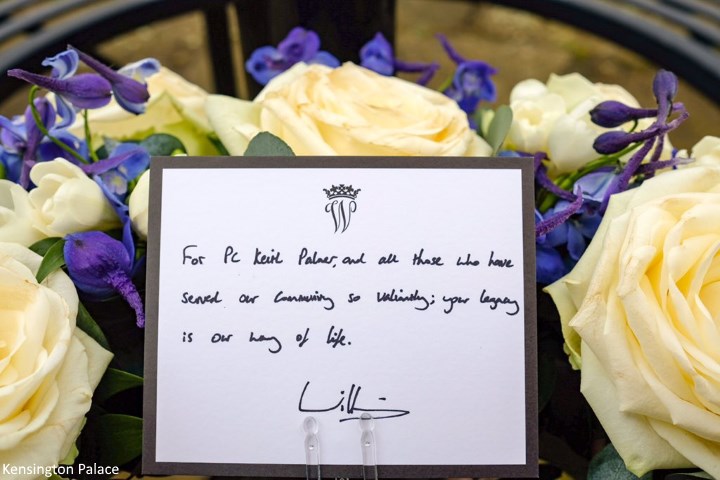 W
For PC Keith Palmer, and all those who have
served our community so valiantly; your legacy
is our way of life.
William
Kensington Palace